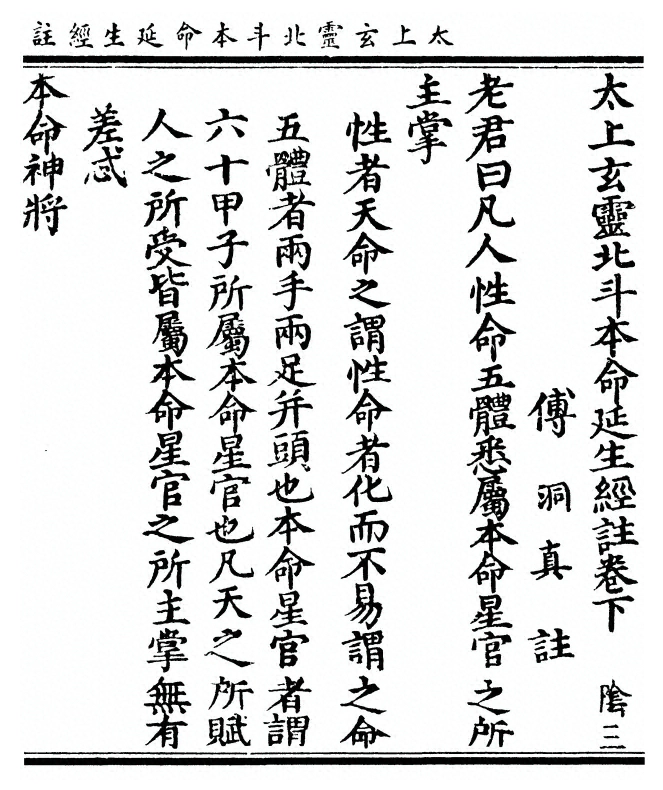 太上玄靈北斗本命延生經註
太上玄靈北斗本命延生經註卷下 陰三
傅洞真註
老君曰凡人性命五體悉屬本命星官之所
主掌
性者天命之謂性命者化而不易謂之命
五體者兩手兩足并頭也本命星官者謂
六十甲子所屬本命星官也凡天之所賦
人之所受皆屬本命星官之所主掌無有
差忒
本命神將